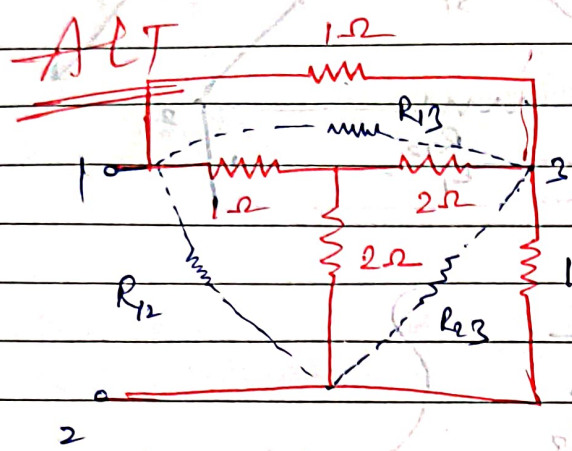 ALT
1Ω
R13
1
3
1Ω
2Ω
2Ω
1
R12
R23
2